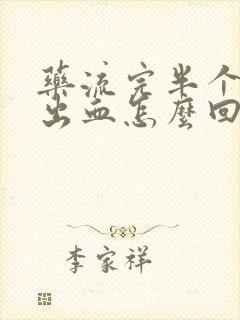 药流完半个
出血怎麽回
李家祥